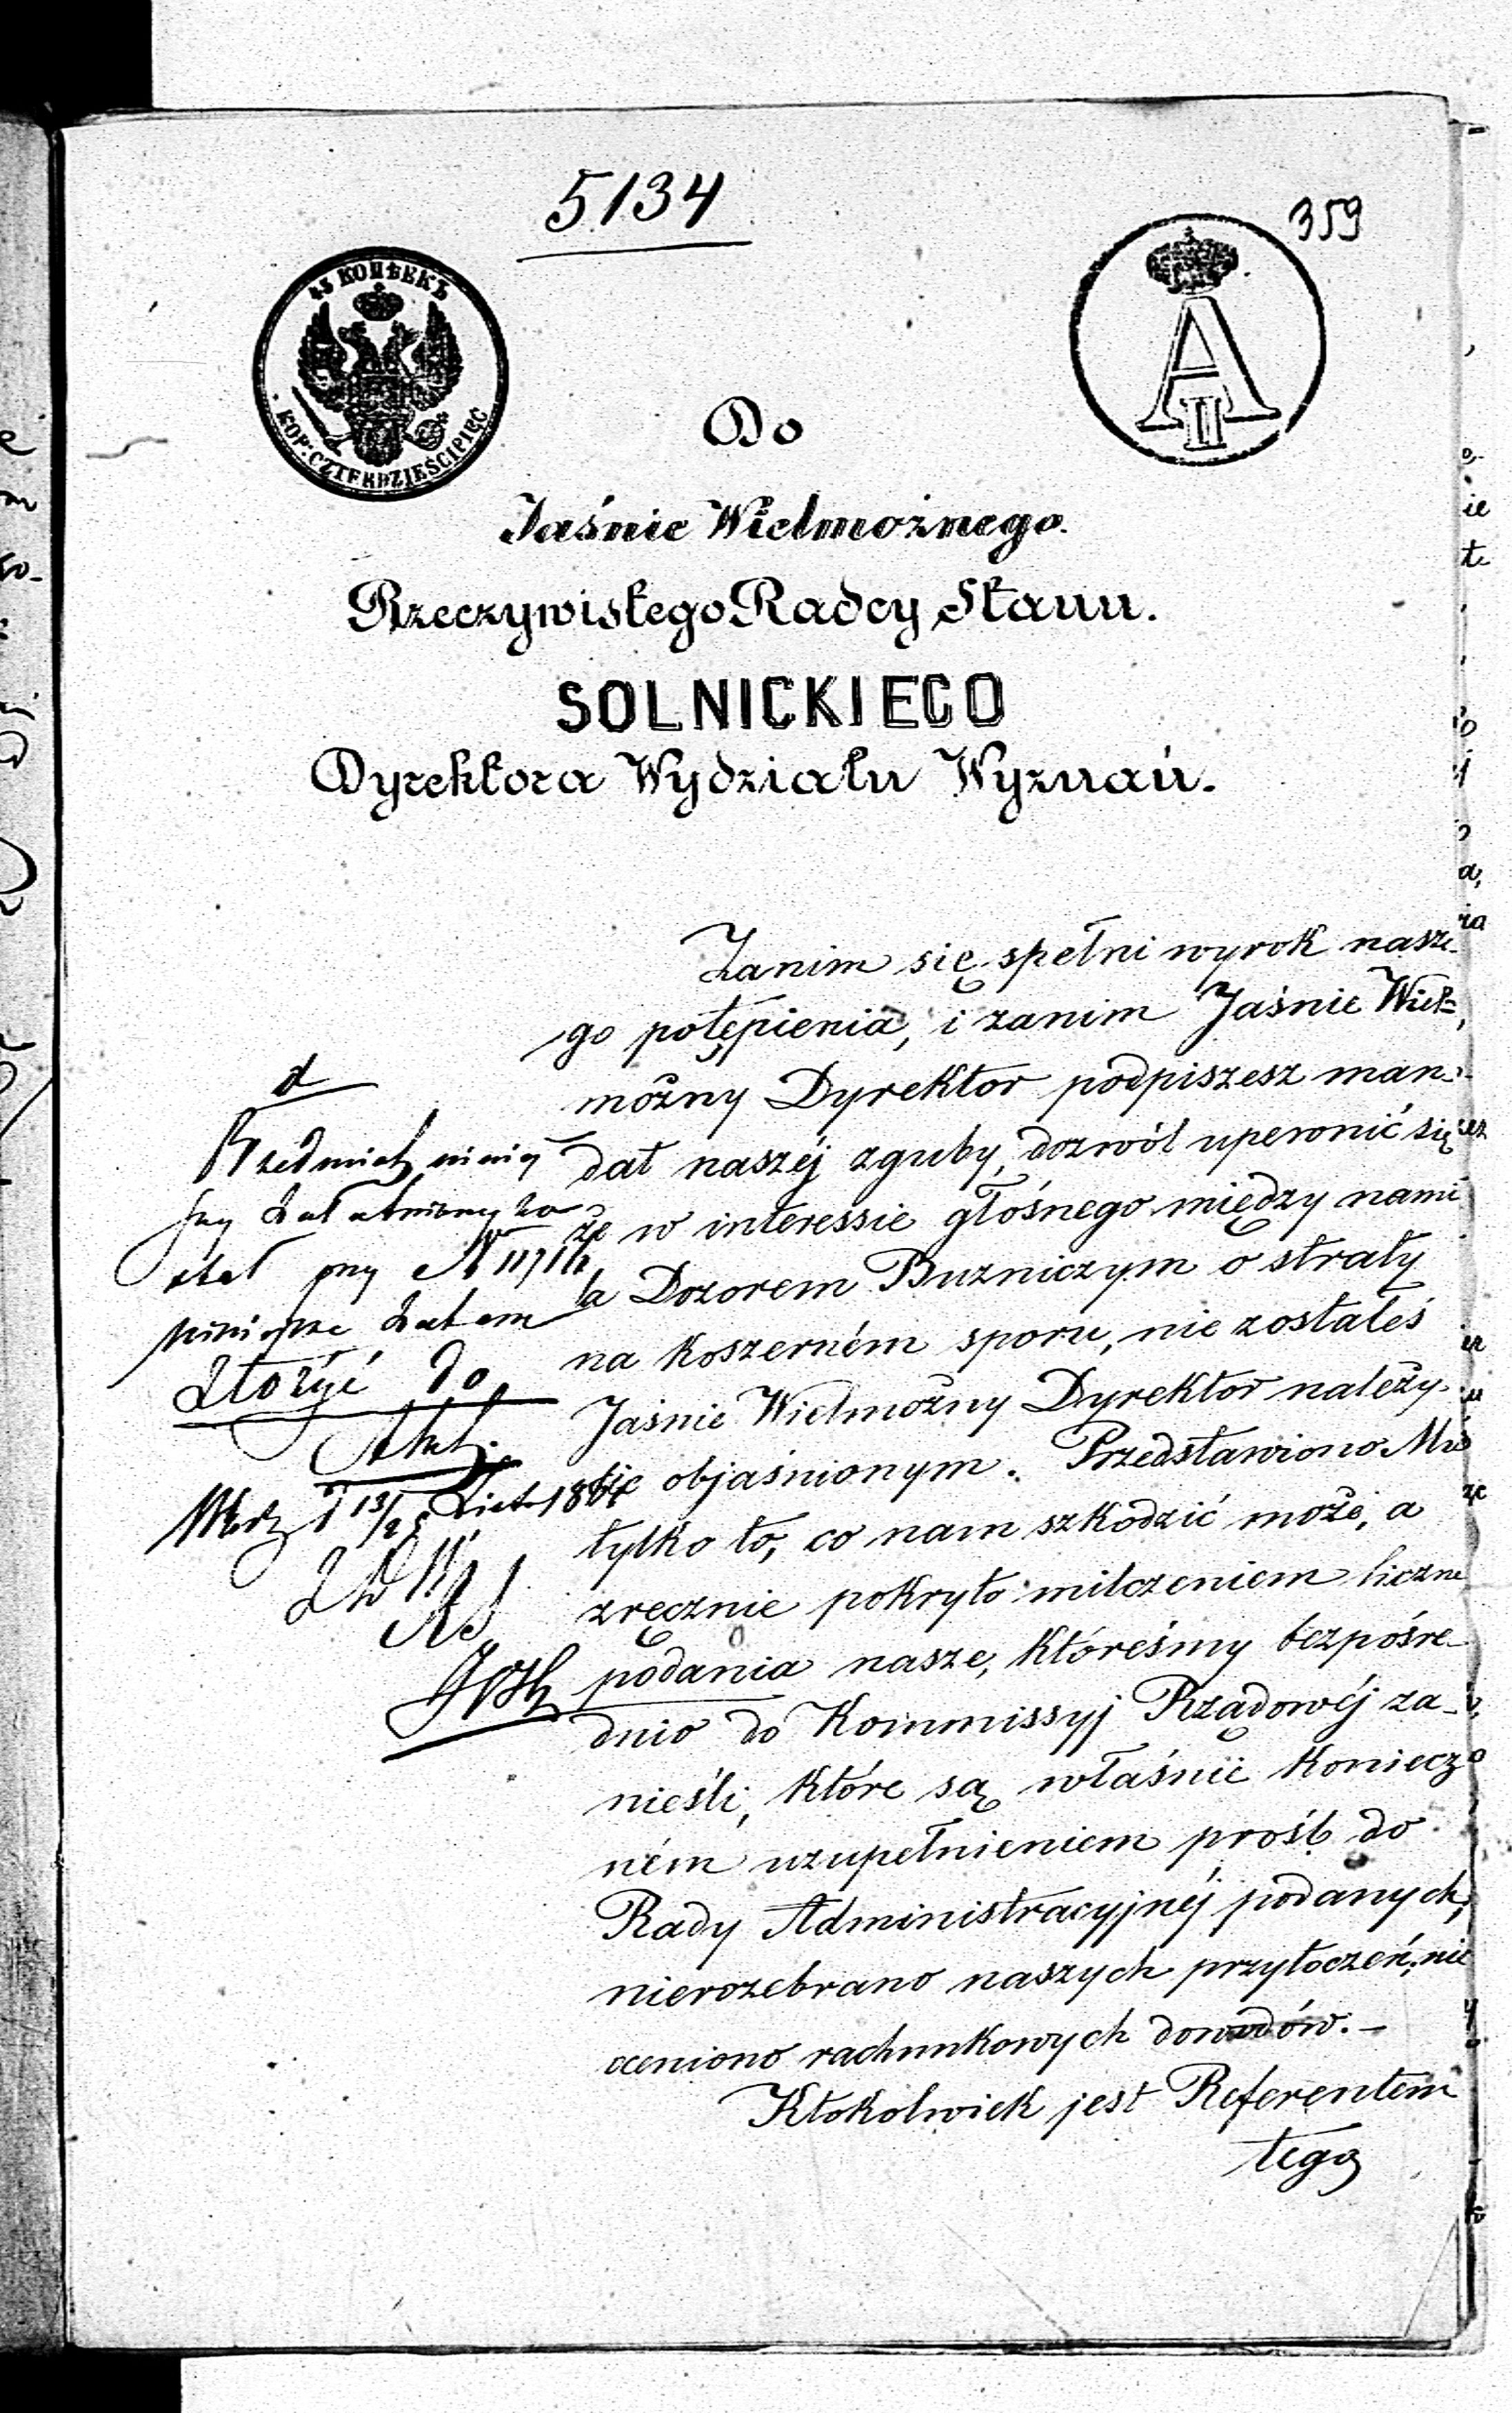 5134
359
45 КОПѢЕКЪ
KOP: CZTERDZIEŚCI PIĘĆ
A II
Do
Jaśnie Wielmożnego.
Rzeczywistego Radcy Stanu.
SOLNICKIEGO
Dyrektora Wydziału Wyznań.
Zanim się spełni wyrok nasze-
go potępienia, i zanim Jaśnie Wiel=
możny Dyrektor podpiszesz man-
dat naszéj zguby, dozwól upewnić się
że w interessie głośnego między nami
a Dozorem Buzniczym o straty
na koszerném sporu, nie zostałeś
Jaśnie Wielmożny Dyrektor należy-
cie objaśnionym. Przedstawiono Mu
tylko to, co nam szkodzić może, a
zręcznie pokryto milczeniem liczne
podania nasze, któreśmy bezpośre-
dnio do Kommissyj Rządowéj za-
nieśli, które są właśnie koniecz
ném uzupełnieniem prośb do
Rady Administracyjnéj podanych,
nierozebrano naszych przytoczeń, nie
oceniono rachunkowych dowodów. -
Ktokolwiek jest Referentem
tego
przy N
złożyć do
Akt.
13/25 1864